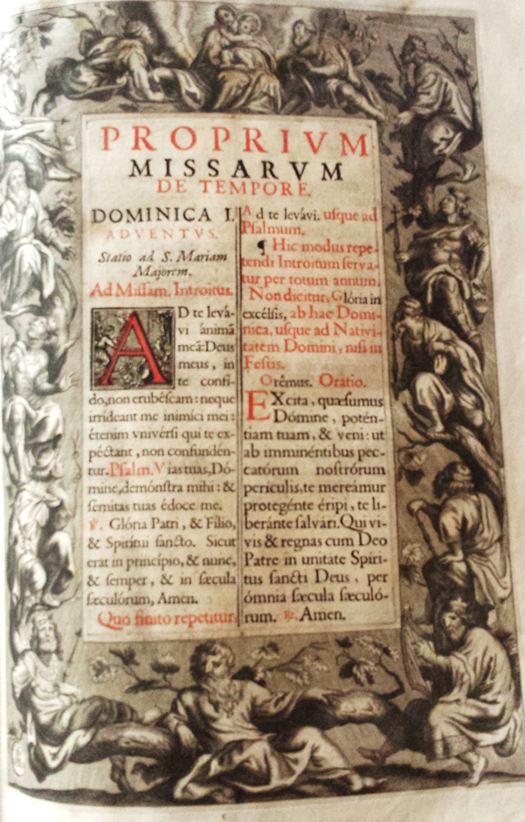 PROPRIVM
MISSARVM
DE TEMPORE.
DOMINICA I.
ADVENTVS.
Statio ad S. Mariam
Majorem.
Ad Missam, Introitus.
AD te levá-
vi ánimā
meā: Deus
meus, in
te confi-
do, non erubéscam: neque
irrídeant me inimíci mei:
étenim vnivérsi qui te ex-
péctant, non confundén-
tur. Psalm. Vias tuas, Dó-
mine, demónstra mihi: &
semitas tuas édoce me.
℣. Glória Patri, & Fílio,
& Spirítui sancto. Sicut
erat in princípio, & nunc,
& semper, & in sæcula
sæculórum, Amen.
Quo finito repetitur,
Ad te levávi, usque ad
Psalmum.
¶ Hic modus repe-
tendi Introitum serva-
tur per totum annum.
Non dicitur, Glória in
excélsis, ab hac Domi-
nica, usque ad Nativi-
tatem Domini, nisi in
Festis.
Orémus. Oratio.
EXcita, quæsumus
Dómine, potén-
tiam tuam, & veni: ut
ab imminéntibus pec-
catórum nostrórum
perículis, te mereámur
protegénte éripi, te li-
beránte salvári. Qui vi-
vis & regnas cum Deo
Patre in unitate Spíri-
tus sancti Deus, per
ómnia sæcula sæculó-
rum. ℟. Amen.